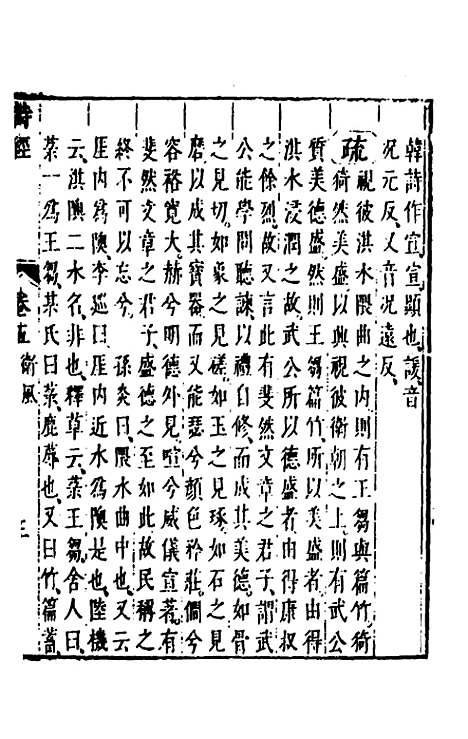 韓詩作宣宣顯也諼音
况元反又音况遠反
疏 視彼淇水隈曲之内則有王芻與篇竹猗
猗然美盛以興視彼衛朝之上則有武公
質美德盛然則王芻篇竹所以美盛者由得
淇水浸潤之故武公所以德盛者由得康叔
之餘烈故又言此有斐然文章之君子謂武
公能學問聽諫以禮自修而成其美德如骨
之見切如象之見磋如玉之見琢如石之見
磨以成其寶器而又能瑟兮顏色矜莊僩兮
容裕寛大赫兮明德外見喧兮威儀宣著有
斐然文章之君子盛德之至如此故民稱之
終不可以忘兮 孫炎曰隈水曲中也又云
厓内爲隩李巡曰厓内近水爲隩是也陸機
云淇隩二水名非也釋草云菉王芻舍人曰
菉一爲王芻某氏曰菉鹿蓐也又曰竹篇蓄
詩經
卷五 衛風
三